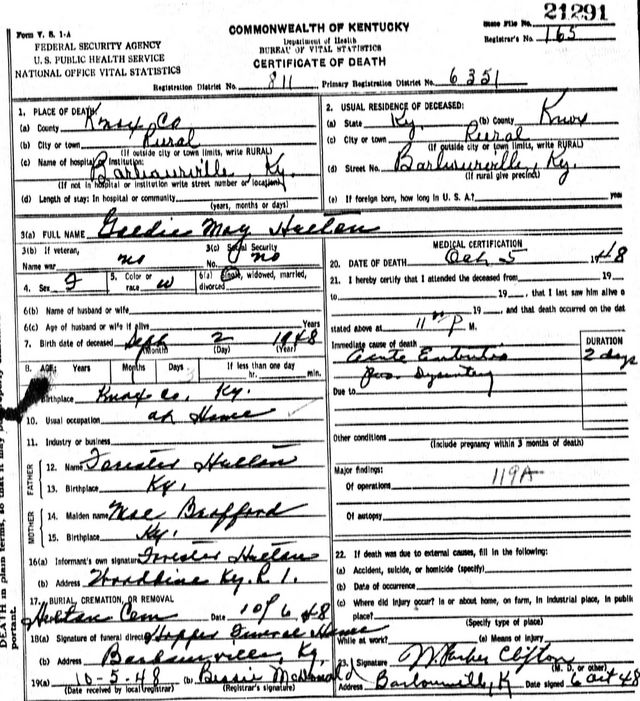 21291
Form V. S. 1-A
COMMONWEALTH OF KENTUCKY
State File No.
FEDERAL SECURITY AGENCY
Department of Health
Registrar's No. 165
U. S. PUBLIC HEALTH SERVICE
BUREAU OF VITAL STATISTICS
NATIONAL OFFICE VITAL STATISTICS
CERTIFICATE OF DEATH
Registration District No. 811 Primary Registration District No. 6351
1. PLACE OF DEATH
(a) County Knox Co
(b) City or town Rural
(If outside city or town limits, write RURAL)
(c) Name of hospital Institution: Barbourville, Ky.
(If not in hospital or institution write street number or location)
(d) Length of stay: In hospital or community
(years, months or days)
2. USUAL RESIDENCE OF DECEASED:
(a) State Ky. (b) County Knox
(c) City or town Rural
(If outside city or town limits, write RURAL)
(d) Street No. Barbourville, Ky.
(If rural give precinct)
(e) If foreign born, how long in U. S. A.? years
3(a) FULL NAME Goldie May Hulton
3(b) If veteran, 3(c) Social Security
Name war no No. no
4. Sex F 5. Color or race W 6(a) Single, widowed, married, divorced
6(b) Name of husband or wife
6(c) Age of husband or wife if alive Years
7. Birth date of deceased Sept 2 1948
(Month) (Day) (Year)
8. AGE: Years Months Days If less than one day
3 hr. min.
Birthplace Knox Co. Ky.
10. Usual occupation at Home
11. Industry or business
FATHER
12. Name Forester Hulton
13. Birthplace Ky.
MOTHER
14. Maiden name Mae
15. Birthplace Ky.
16(a) Informant's own signature Forester Hulton
(b) Address Woodbine Ky. R 1.
17. BURIAL, CREMATION, OR REMOVAL
Hulton Cem Date 10/6 48
18(a) Signature of funeral director Hopper Funeral Home
(b) Address Barbourville, Ky.
19(a) 10-5-48 (b) Bessie McDonald
(Date received by local registrar) (Registrar's signature)
MEDICAL CERTIFICATION
20. DATE OF DEATH Oct 5 1948
21. I hereby certify that I attended the deceased from 19
to 19, that I last saw him alive o
19, and that death occurred on the dat
stated above at 11 P M.
Immediate cause of death DURATION
Acute Enteritis 2 days
Due to Dysentery
Other conditions
(Include pregnancy within 3 months of death)
Major findings:
Of operations 119A
Of autopsy
22. If death was due to external causes, fill in the following:
(a) Accident, suicide, or homicide (specify)
(b) Date of occurrence
(c) Where did injury occur? in or about home, on farm, in industrial place, in public
place?
(Specify type of place)
While at work? (e) Means of injury
23. Signature W. Parker Clifton
(M. D. or other)
Address Barbourville, K Date signed 6 Oct 48
DEATH in plain terms, so that it may
portant.